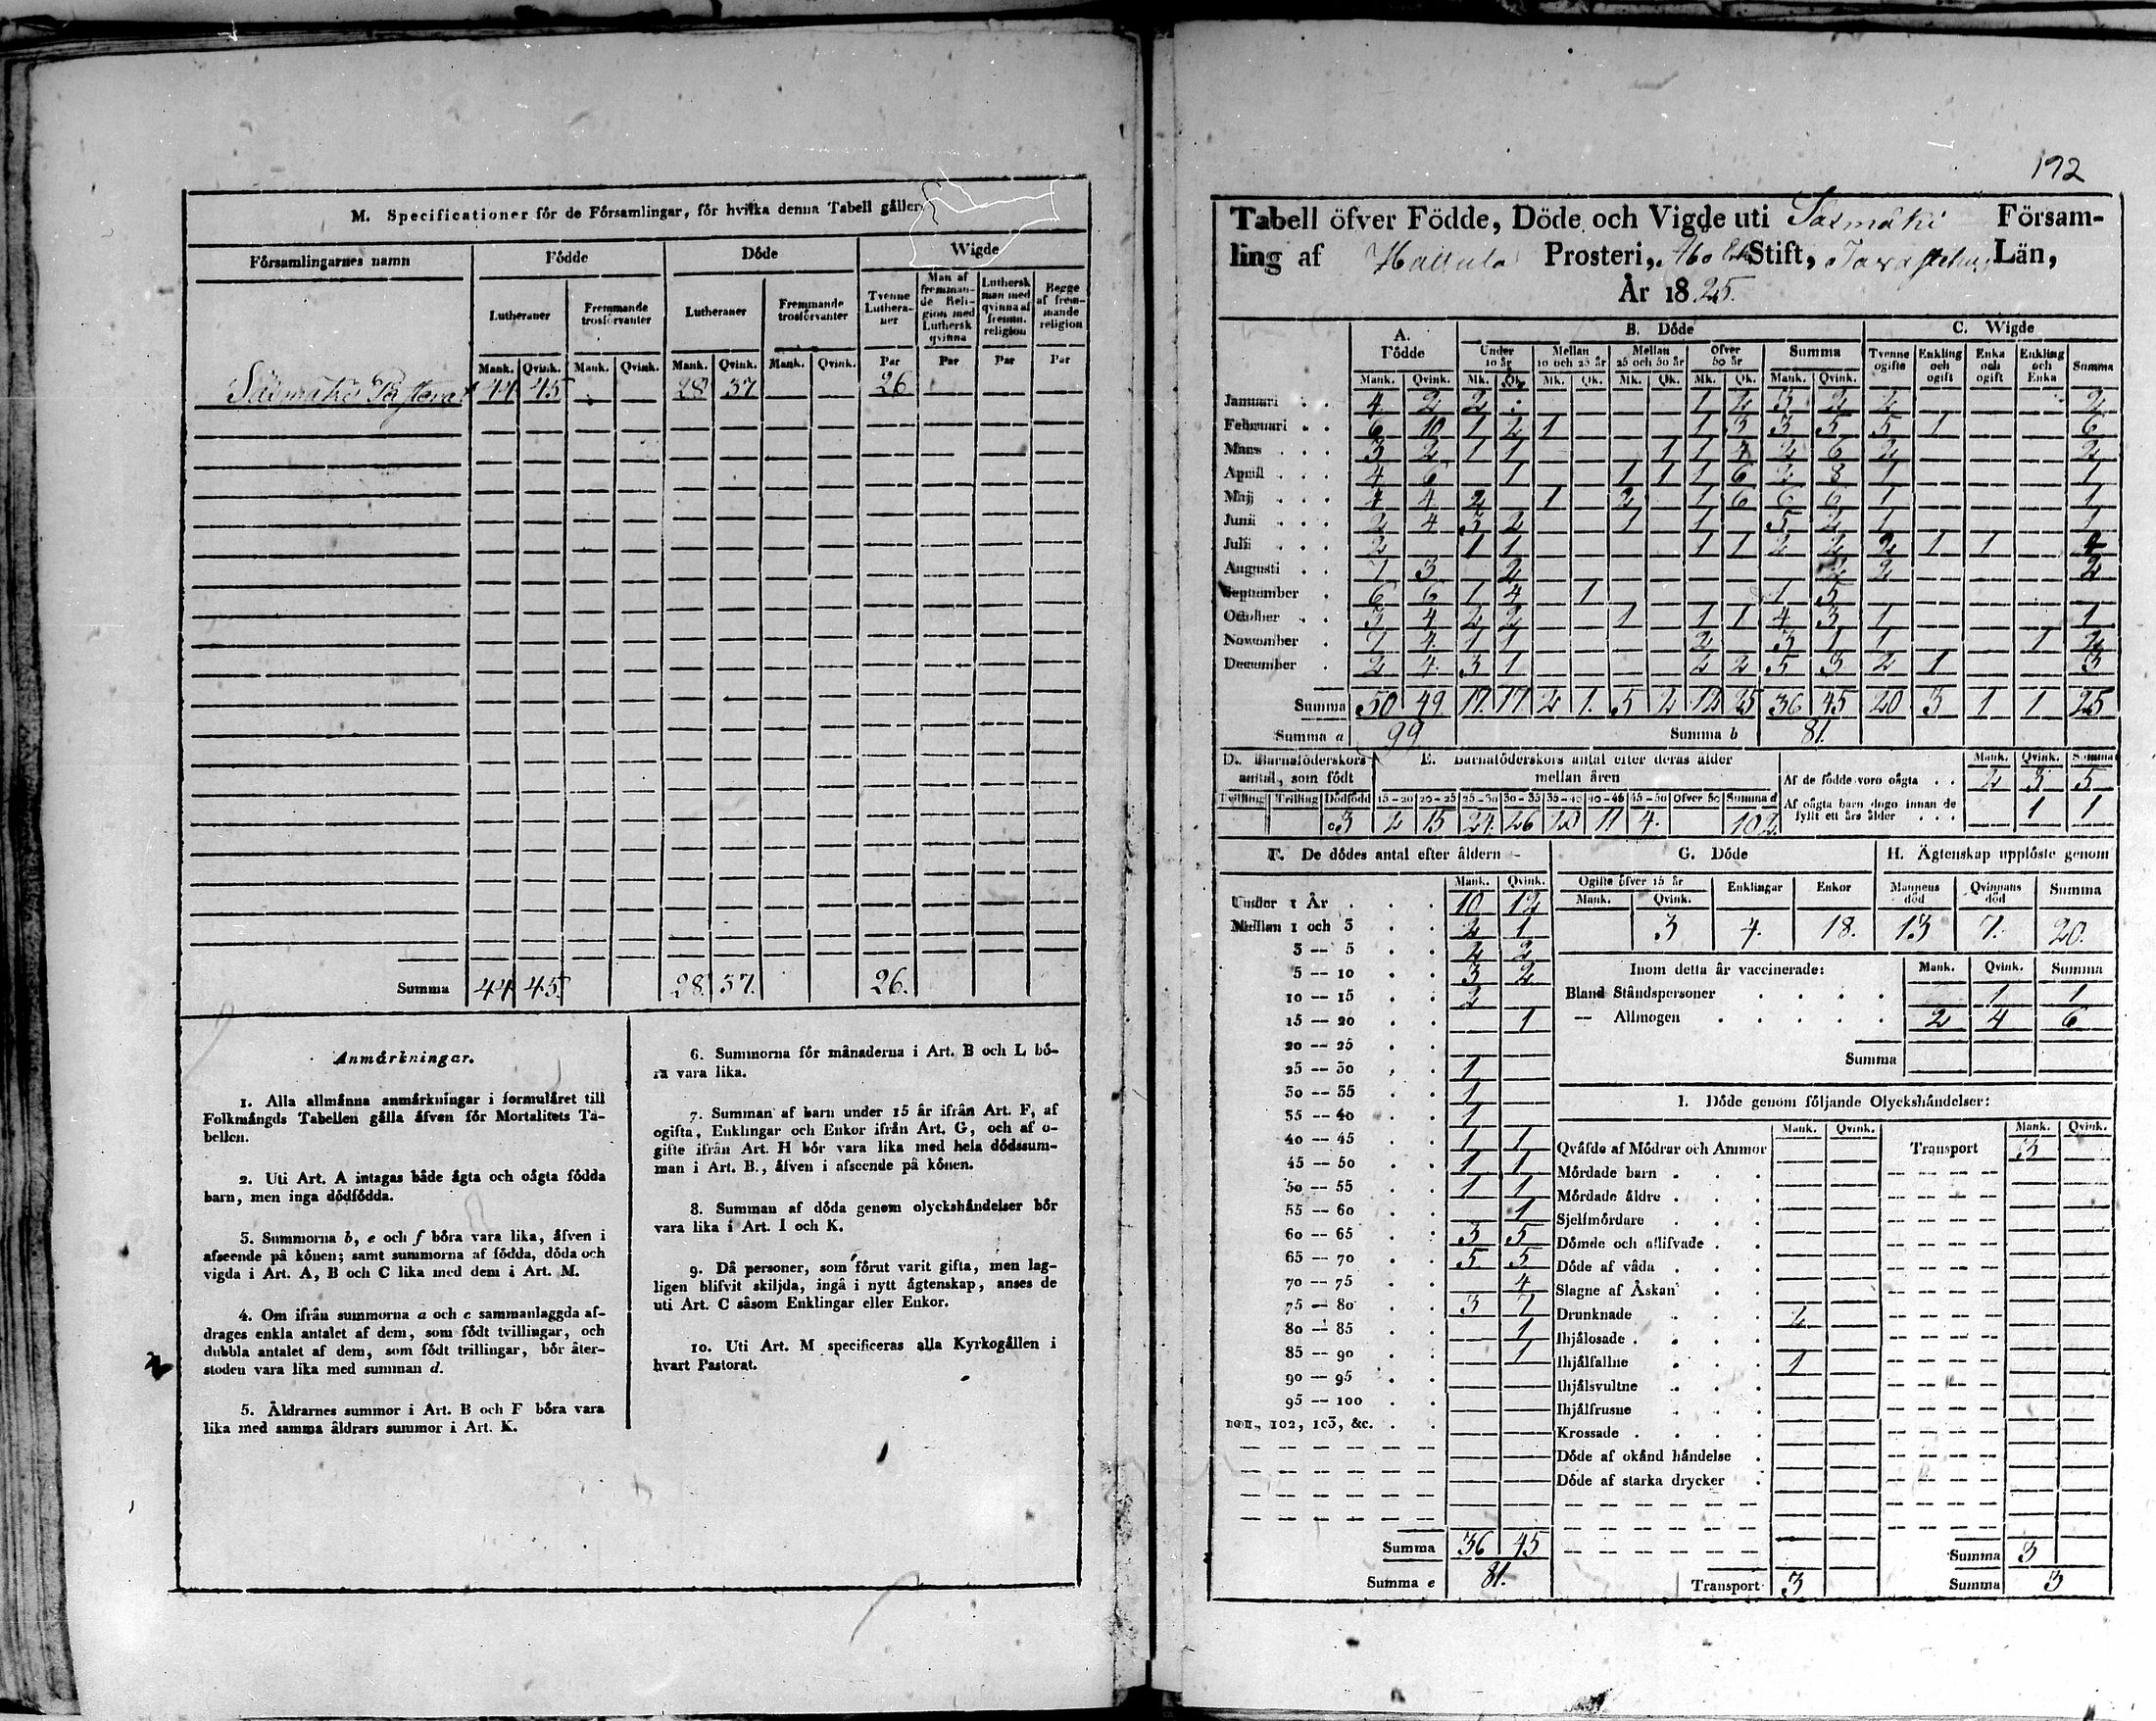 M. Specificationer för de Församlingar, för hvilka denna Tabell gäller.
Församlingarnes namn | Födde | Döde | Wigde
Lutheraner | Fremmande trosförvanter | Lutheraner | Fremmande trosförvanter | Tvenne Lutheraner | Man af fremmande Religion med Luthersk qvinna | Luthersk man med qvinna af fremm. religion | Begge af fremmande religion
Mank. Qvink. Mank. Qvink. Mank. Qvink. Mank. Qvink. Par Par Par Par
Säxmäki 44 45 28 37 26
Summa 44 45. 28. 37. 26.
Anmärkningar.
1. Alla allmänna anmärkningar i formuläret till
Folkmängds Tabellen gälla äfven för Mortalitets Ta-
bellen.
2. Uti Art. A intagas både ägta och oägta födda
barn, men inga dödfödda.
3. Summorna b, e och f böra vara lika, äfven i
afseende på könen; samt summorna af födda, döda och
vigda i Art. A, B och C lika med dem i Art. M.
4. Om ifrån summorna a och c sammanlaggda af-
drages enkla antalet af dem, som födt tvillingar, och
dubbla antalet af dem, som födt trillingar, bör åter-
stoden vara lika med summan d.
5. Åldrarnes summor i Art. B och F böra vara
lika med samma åldrars summor i Art. K.
6. Summorna för månaderna i Art. B och L bö-
ra vara lika.
7. Summan af barn under 15 år ifrån Art. F, af
ogifta, Enklingar och Enkor ifrån Art. G, och af o-
gifte ifrån Art. H bör vara lika med hela dödssum-
man i Art. B., äfven i afseende på könen.
8. Summan af döda genom olyckshändelser bör
vara lika i Art. I och K.
9. Då personer, som förut varit gifta, men lag-
ligen blifvit skiljda, ingå i nytt ägtenskap, anses de
uti Art. C såsom Enklingar eller Enkor.
10. Uti Art. M specificeras alla Kyrkogällen i
hvart Pastorat.
192
Tabell öfver Födde, Döde och Vigde uti Säxmäki Försam-
ling af Hattula Prosteri, Åbo Stift, Tavastehus Län,
År 1825.
A. Födde | B. Döde | C. Wigde
Under 10 år | Mellan 10 och 25 år | Mellan 25 och 50 år | Öfver 50 år | Summa | Tvenne ogifte | Enkling och ogift | Enka och ogift | Enkling och Enka | Summa
Mank. Qvink. Mk. Qk. Mk. Qk. Mk. Qk. Mk. Qk. Mank. Qvink.
Januari 4 2 2 1 2 3 2 2 2
Februari 6 10 1 2 1 1 3 3 5 5 1 6
Mars 3 2 1 1 1 1 4 2 6 2 2
April 4 6 1 1 1 1 6 2 8 1 1
Maj 4 4 2 1 2 1 6 6 6 1 1
Junii 2 4 3 2 1 1 5 2 1 1
Julii 2 1 1 1 1 2 2 2 1 1 4
Augusti 7 3 2 2 2 2
September 6 6 1 4 1 1 5
October 3 4 2 2 1 1 1 4 3 1 1
November 7 4 1 1 2 3 1 1 1 2
December 2 4 3 1 2 2 5 3 2 1 3
Summa 50 49 17 17 2 1 5 2 12 25 36 45 20 3 1 1 25
Summa a 99 Summa b 81.
D. Barnaföderskors antal, som födt
Tvilling Trilling Dödfödd
c 3
E. Barnaföderskors antal efter deras ålder mellan åren
15–20 20–25 25–30 30–35 35–40 40–45 45–50 Öfver 50 Summa d
2 15 24 26 20 11 4. 102
Mank. Qvink. Summa
Af de födde voro oägta 2 3 5
Af oägta barn dogo innan de fyllt ett års ålder 1 1
F. De dödes antal efter åldern
Mank. Qvink.
Under 1 År 10 12
Mellan 1 och 3 2 1
3 — 5 2 2
5 — 10 3 2
10 — 15 2
15 — 20 1
20 — 25
25 — 30 1
30 — 35 1
35 — 40 1
40 — 45 1 1
45 — 50 1 1
50 — 55 1 1
55 — 60 1
60 — 65 3 5
65 — 70 5 5
70 — 75 4
75 — 80 3 7
80 — 85 1
85 — 90 1
90 — 95
95 — 100
101, 102, 103, &c.
Summa 36 45
Summa e 81.
G. Döde
Ogifte öfver 15 år | Enklingar | Enkor
Mank. Qvink.
3 4. 18.
H. Ägtenskap upplöste genom
Mannens död | Qvinnans död | Summa
13 7. 20.
Inom detta år vaccinerade: Mank. Qvink. Summa
Bland Ståndspersoner 1 1
— Allmogen 2 4 6
Summa
I. Döde genom följande Olyckshändelser:
Mank. Qvink. Mank. Qvink.
Qväfde af Mödrar och Ammor Transport 3
Mördade barn
Mördade äldre
Sjelfmördare
Dömde och aflifvade
Döde af våda
Slagne af Åskan
Drunknade 2
Ihjälosade
Ihjälfallne 1
Ihjälsvultne
Ihjälfrusne
Krossade
Döde af okänd händelse
Döde af starka drycker
Summa 3
Transport 3 Summa 3